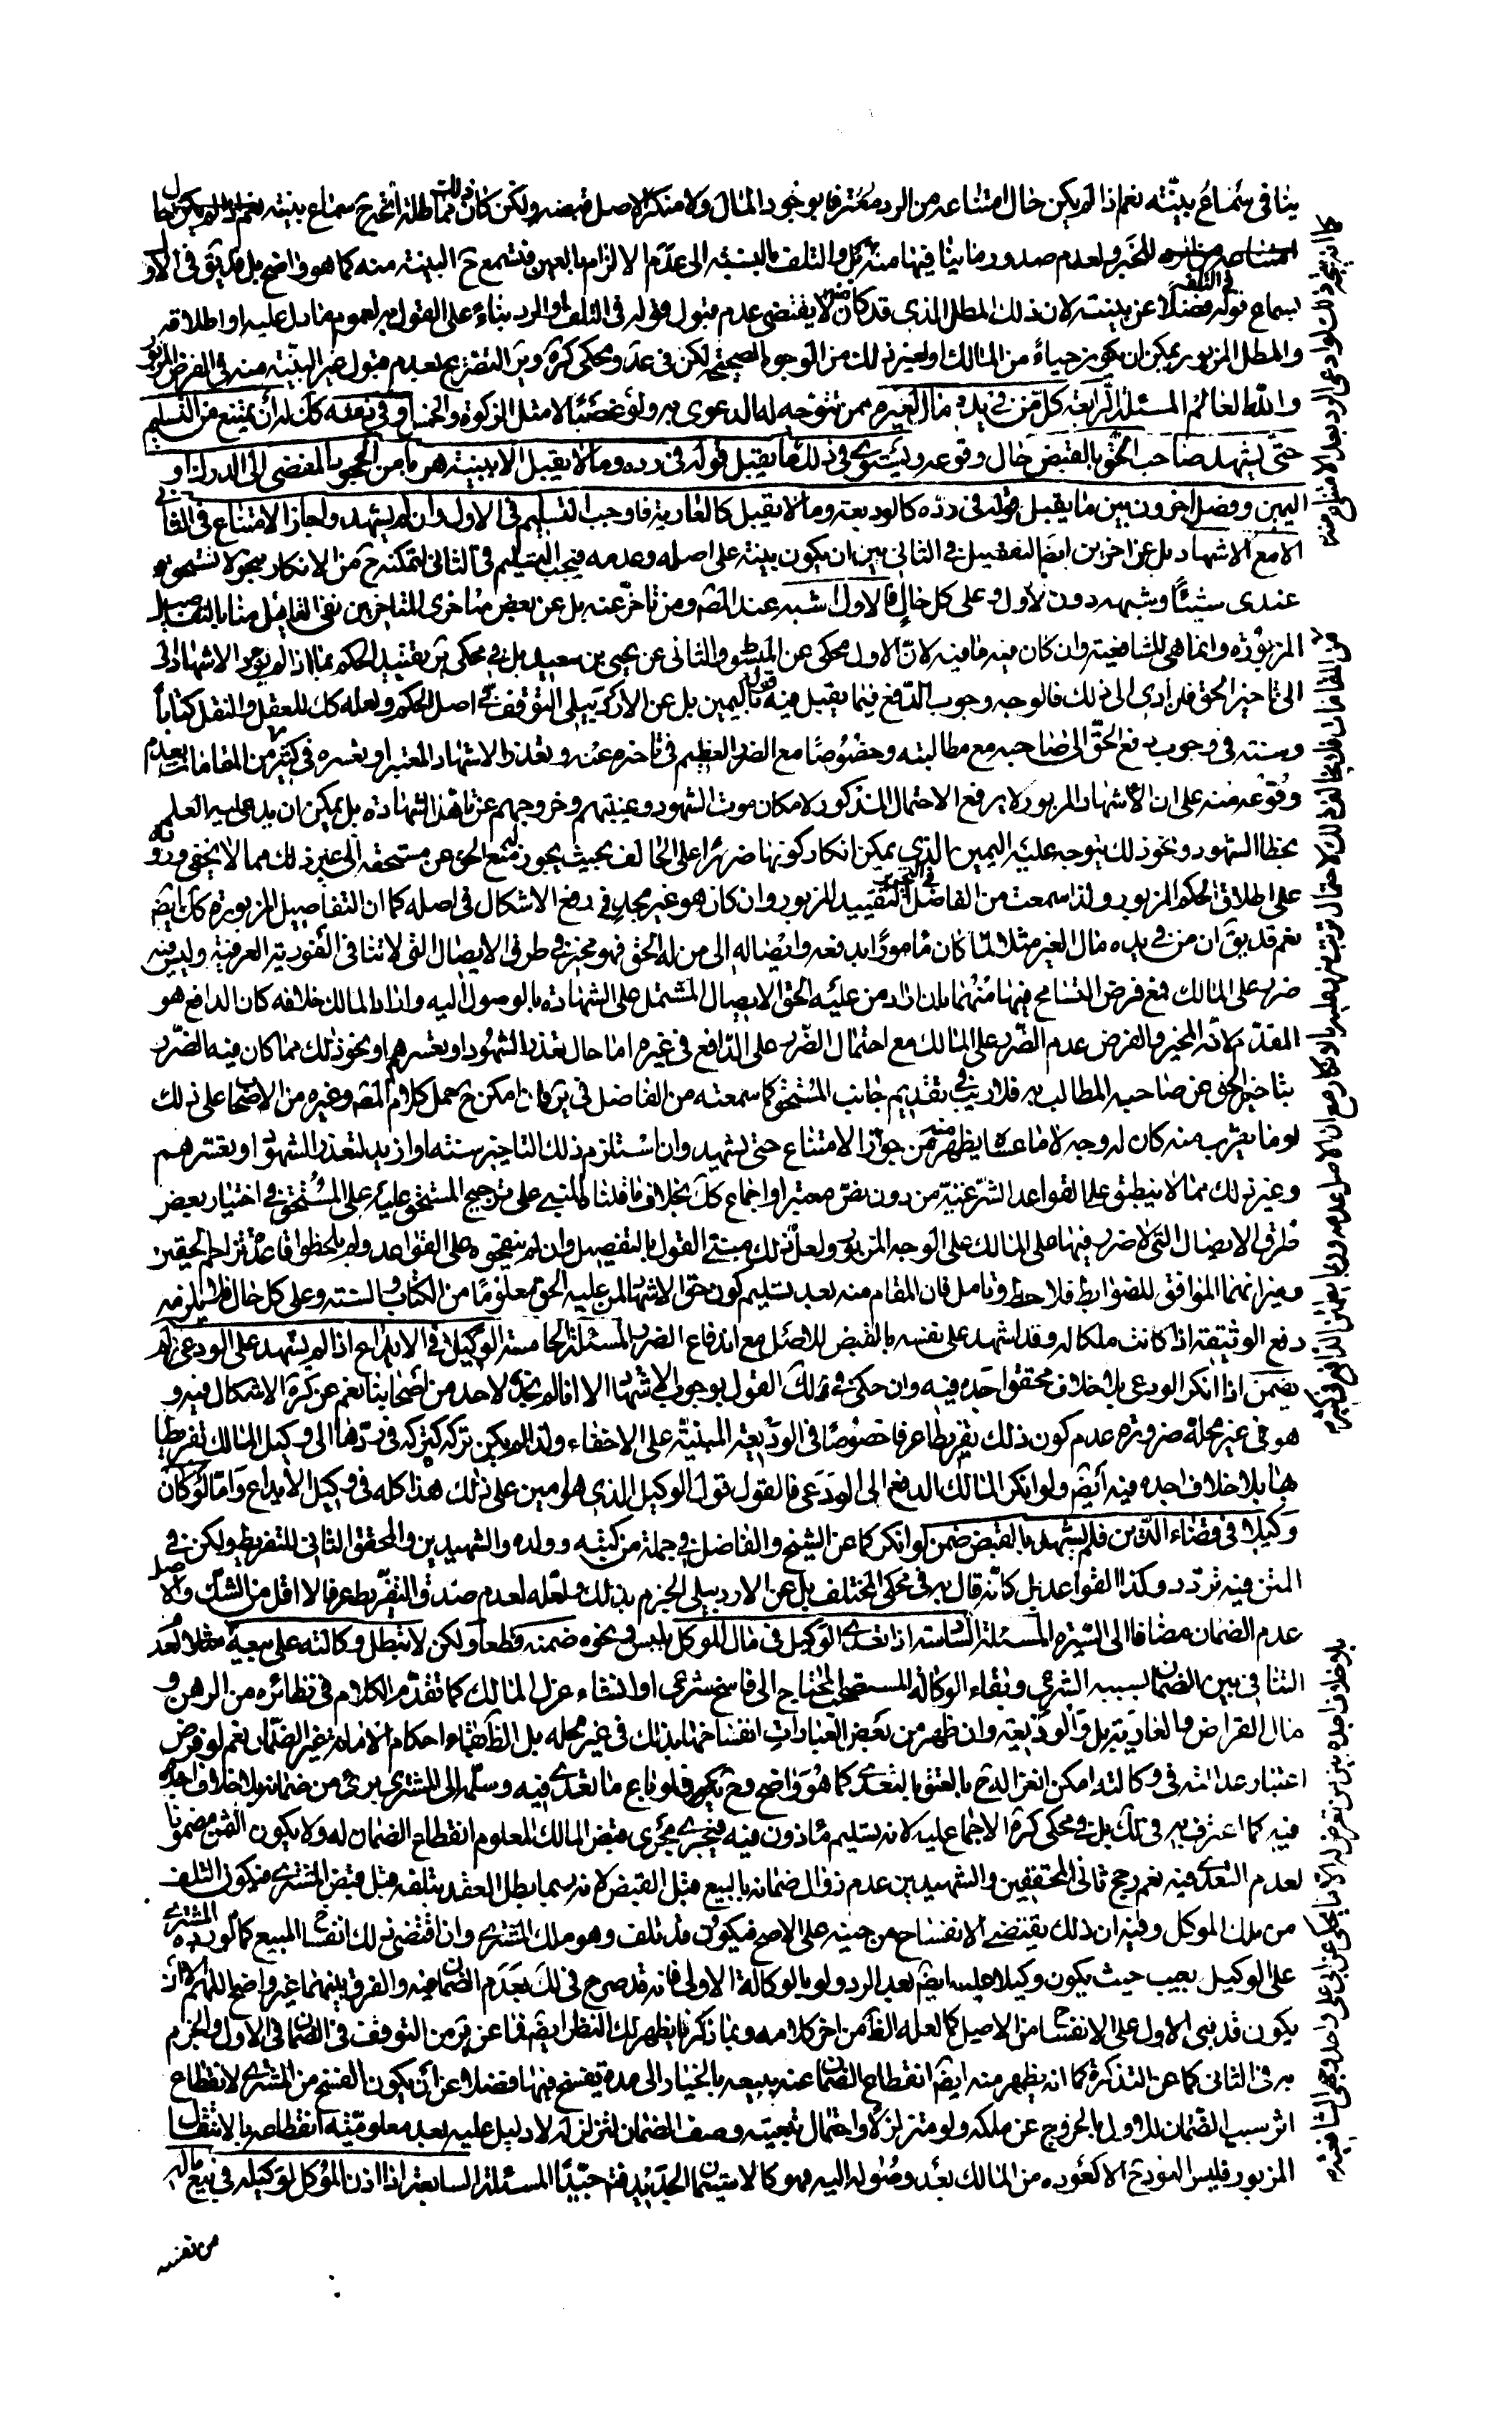 ينافى سماع بينته نعم اذا لم يكن حال امتناعه من الرد معترفا بوجود المال ولا منكرا لاصل قبضه ولكن كان ذلك مماطلة اتجه ح سماع بينته
لعدم صدور ما ينافيها منه كل والتلف بالنسبة الى عدم الالزام بالعين فتسمع ح البينة منه كما هو واضح بل قد يق فى
بسماع قوله فى التلف فضلا عن بينته لان ذلك المطل الذى قد كان منه لا يقتضى عدم قبول قوله فى التلف او الرد بناء على القبول به لعموم ما دل عليه او اطلاقه
والمطل المزبور يمكن ان يكون حياء من المالك او لغير ذلك من الوجوه الصحيحة لكن فى عد ومحكى كرة وير التصريح بعدم قبول غير البينة منه فى الفرض المزبور
والله العالم المسئلة الرابعة كل من فى يده مال لغيره ممن تتوجه له الدعوى به ولو غصبا لا مثل الزكوة والخمس او فى ذمته كك له ان يمتنع من التسليم
حتى يشهد صاحب الحق بالقبض حال وقوعه ويستوى فى ذلك ما يقبل قوله فى رده وما لا يقبل الا ببينة هربا من الجحود المفضى الى الدرك او
اليمين وفصل اخرون بين ما يقبل قوله فى رده كالوديعة وما لا يقبل كالعارية فاوجب التسليم فى الاول وان لم يشهد واجاز الامتناع فى الثانى
الا مع الاشهاد بل عن اخرين ايضا التفصيل فى الثانى بين ان يكون بينة على اصله وعدمه فيجب التسليم فى الثانى لتمكنه ح من الانكار بنحو لا تستحق
عندى شيئا وشبهه دون الاول وعلى كل حال فالاول اشبه عند المص ومن تاخر عنه بل عن بعض متاخرى المتاخرين نفى القائل منا بالتفصيل
المزبورة وانما هى للشافعية وان كان فيه ما فيه لان الاول محكى عن المبسوط والثانى عن يحيى بن سعيد بل فى محكى ير تقييد الحكم بما اذا لم يؤد الاشهاد الى
الى تاخير الحق فان ادى الى ذلك فالوجه وجوب الدفع فيما يقبل فيه قوله باليمين بل عن الاردبيلى التوقف فى اصل الحكم ولعله كك للعقل والنقل كتابا
وسنة فى وجوب دفع الحق الى صاحبه مع مطالبته وخصوصا مع الضرر العظيم فى تاخره عنه وتعذر الاشهاد المعتبر او تعسره فى كثير من المقامات بعدم
وقوعه منه على ان الاشهاد المزبور لا يرفع الاحتمال المذكور لامكان موت الشهود وغيبتهم وخروجهم عن اهل الشهادة بل يمكن ان يدعى عليه العلم
بخطا الشهود ونحو ذلك فيتوجه عليه اليمين الذى يمكن انكار كونها ضررا على الحالف بحيث يجوز لها منع الحق عن مستحقه الى غير ذلك مما لا يخفى
على اطلاق الحكم المزبور ولذا سمعت من الفاضل فى التحرير التقييد المزبور وان كان هو غير مجد فى رفع الاشكال فى اصله كما ان التفاصيل المزبورة كك ايض
نعم قد يق ان من فى يده مال الغير مثلا لما كان مامورا بدفعه وايصاله الى من له الحق فهو مخير فى طرق الايصال التى لا تنافى الفورية العرفية وليس فيه
ضرر على المالك فمع فرض التسامح فيها منهما بان اراد من عليه الحق الايصال المشتمل على الشهادة بالوصول اليه واراد المالك خلافه كان الدافع هو
المقدم لانه المخير والفرض عدم الضرر على المالك مع احتمال الضرر على الدافع فى غيره اما حال تعذر الشهود او تعسرهم او نحو ذلك مما كان فيه الضرر
بتاخير الحق عن صاحبه المطالب به فلا ريب فى تقديم جانب المستحق كما سمعته من الفاضل فى ير فان امكن ح حمل كلام المص وغيره من الاصحاب على ذلك
او ما يقرب منه كان له وجه لا ما عساه يظهر منه من جواز الامتناع حتى يشهد وان استلزم ذلك التاخير سنة او ازيد لتعذر الشهود او تعسرهم
وغير ذلك مما لا ينطبق على القواعد الشرعية من دون نص معتبر او اجماع كك بخلاف ما قلناه المبنى على ترجيح المستحق عليه على المستحق فى اختيار بعض
طرق الايصال التى لا ضرر فيها على المالك على الوجه المزبور ولعل ذلك مبنى القول بالتفصيل وان لم ينقحوه على القواعد ولم يلحظوا قاعدة تزاحم الحقين
وميزانهما الموافق للضوابط فلاحظ وتامل فان المقام منه بعد تسليم كون حق الاشهاد لمن عليه الحق معلوما من الكتاب والسنة وعلى كل حال فلا يلزمه
دفع الوثيقة اذا كانت ملكا له وقد اشهد على نفسه بالقبض للاصل مع اندفاع الضرر المسئلة الخامسة الوكيل فى الايداع اذا لم يشهد على الودعى لم
يضمن اذا انكر الودعى بلا خلاف محقق اجده فيه وان حكى فى لك القول بوجوب الاشهاد الا انا لم نجده لاحد من اصحابنا نعم عن كرة الاشكال فيه و
هو فى غير محله ضرورة عدم كون ذلك تفريطا عرفا خصوصا فى الوديعة المبنية على الاخفاء ولذا لم يكن تركه كتركه فى ردها الى وكيل المالك تفريطا
بها بلا خلاف اجده فيه ايض ولو انكر المالك الدفع الى الودعى فالقول قول الوكيل الذى هو امين على ذلك هذا كله فى وكيل الايداع واما لو كان
وكيلا فى قضاء الدين فلم يشهد بالقبض ضمن لو انكر كما عن الشيخ والفاضل فى جملة من كتبه وولده والشهيدين والمحقق الثانى للتفريط ولكن فى
المتن فيه تردد وكذا القواعد بل كانه قال به فى محكى المختلف بل عن الاردبيلى الجزم بذلك ولعله لعدم صدق التفريط عرفا لا اقل من الشك والاصل
عدم الضمان مضافا الى السيرة المسئلة السادسة اذا تعدى الوكيل فى مال الموكل بلبس ونحوه ضمنه قطعا ولكن لا تبطل وكالته على بيعه مثلا لعدم
التنافى بين الضمان لسببه الشرعى وبقاء الوكالة المستصحب المحتاج الى فاسخ شرعى او انشاء عزل المالك كما تقدم الكلام فى نظائره من الرهن و
مال القراض والعارية بل والوديعة وان ظهر من بعض العبادات انفساخها بذلك فى غير محله بل الظ بقاء احكام الامانة غير الضمان نعم لو فرض
اعتبار عدالته فى وكالته امكن انعزاله ح بالفسق بالتعدى كما هو واضح وح فلو باع ما تعدى فيه وسلمه الى المشترى برئ من ضمانه بلا خلاف اجده
فيه كما اعترف به فى لك بل فى محكى كرة الاجماع عليه لانه تسليم ماذون فيه فيجرى مجرى قبض المالك المعلوم انقطاع الضمان له ولا يكون الثمن مضمونا
لعدم التعدى فيه نعم رجح ثانى المحققين والشهيدين عدم زوال ضمانه بالبيع قبل القبض لانه ربما بطل العقد بتلفه قبل قبض المشترى فيكون التلف
من ملك الموكل وفيه ان ذلك يقتضى الانفساخ من حينه على الاصح فيكون قد تلف وهو ملك المشترى وان اقتضى ذلك انفساخ المبيع كما لو رده المشترى
على الوكيل بعيب حيث يكون وكيلا عليه ايض بعد الرد ولو بالوكالة الاولى فانه قد صرح فى لك بعدم الضمان فيه والفرق بينهما غير واضح اللهم الا ان
يكون قد بنى الاول على الانفساخ من الاصل كما لعله الظ من اخر كلامه وبما ذكرنا يظهر لك النظر ايض فيما عن ير من التوقف فى الضمان فى الاول والجزم
به فى الثانى كما عن التذكرة كما انه يظهر منه ايض انقطاع الضمان عنه ببيعه بالخيار الى مدة يفسخ فيها فضلا عن ان يكون الفسخ من المشترى لانقطاع
اثر سبب الضمان الاول بالخروج عن ملكه ولو متزلزلا واحتمال تبعية وصف الضمان لتزلزله لا دليل عليه بعد معلومية انقطاعه بالانتقال
المزبور فليس العود ح الا كعوده من المالك بعد وصوله اليه فهو كالاستيمان الجديد فتامل جيدا المسئلة السابعة اذا اذن الموكل لوكيله فى بيع ماله
من نفسه